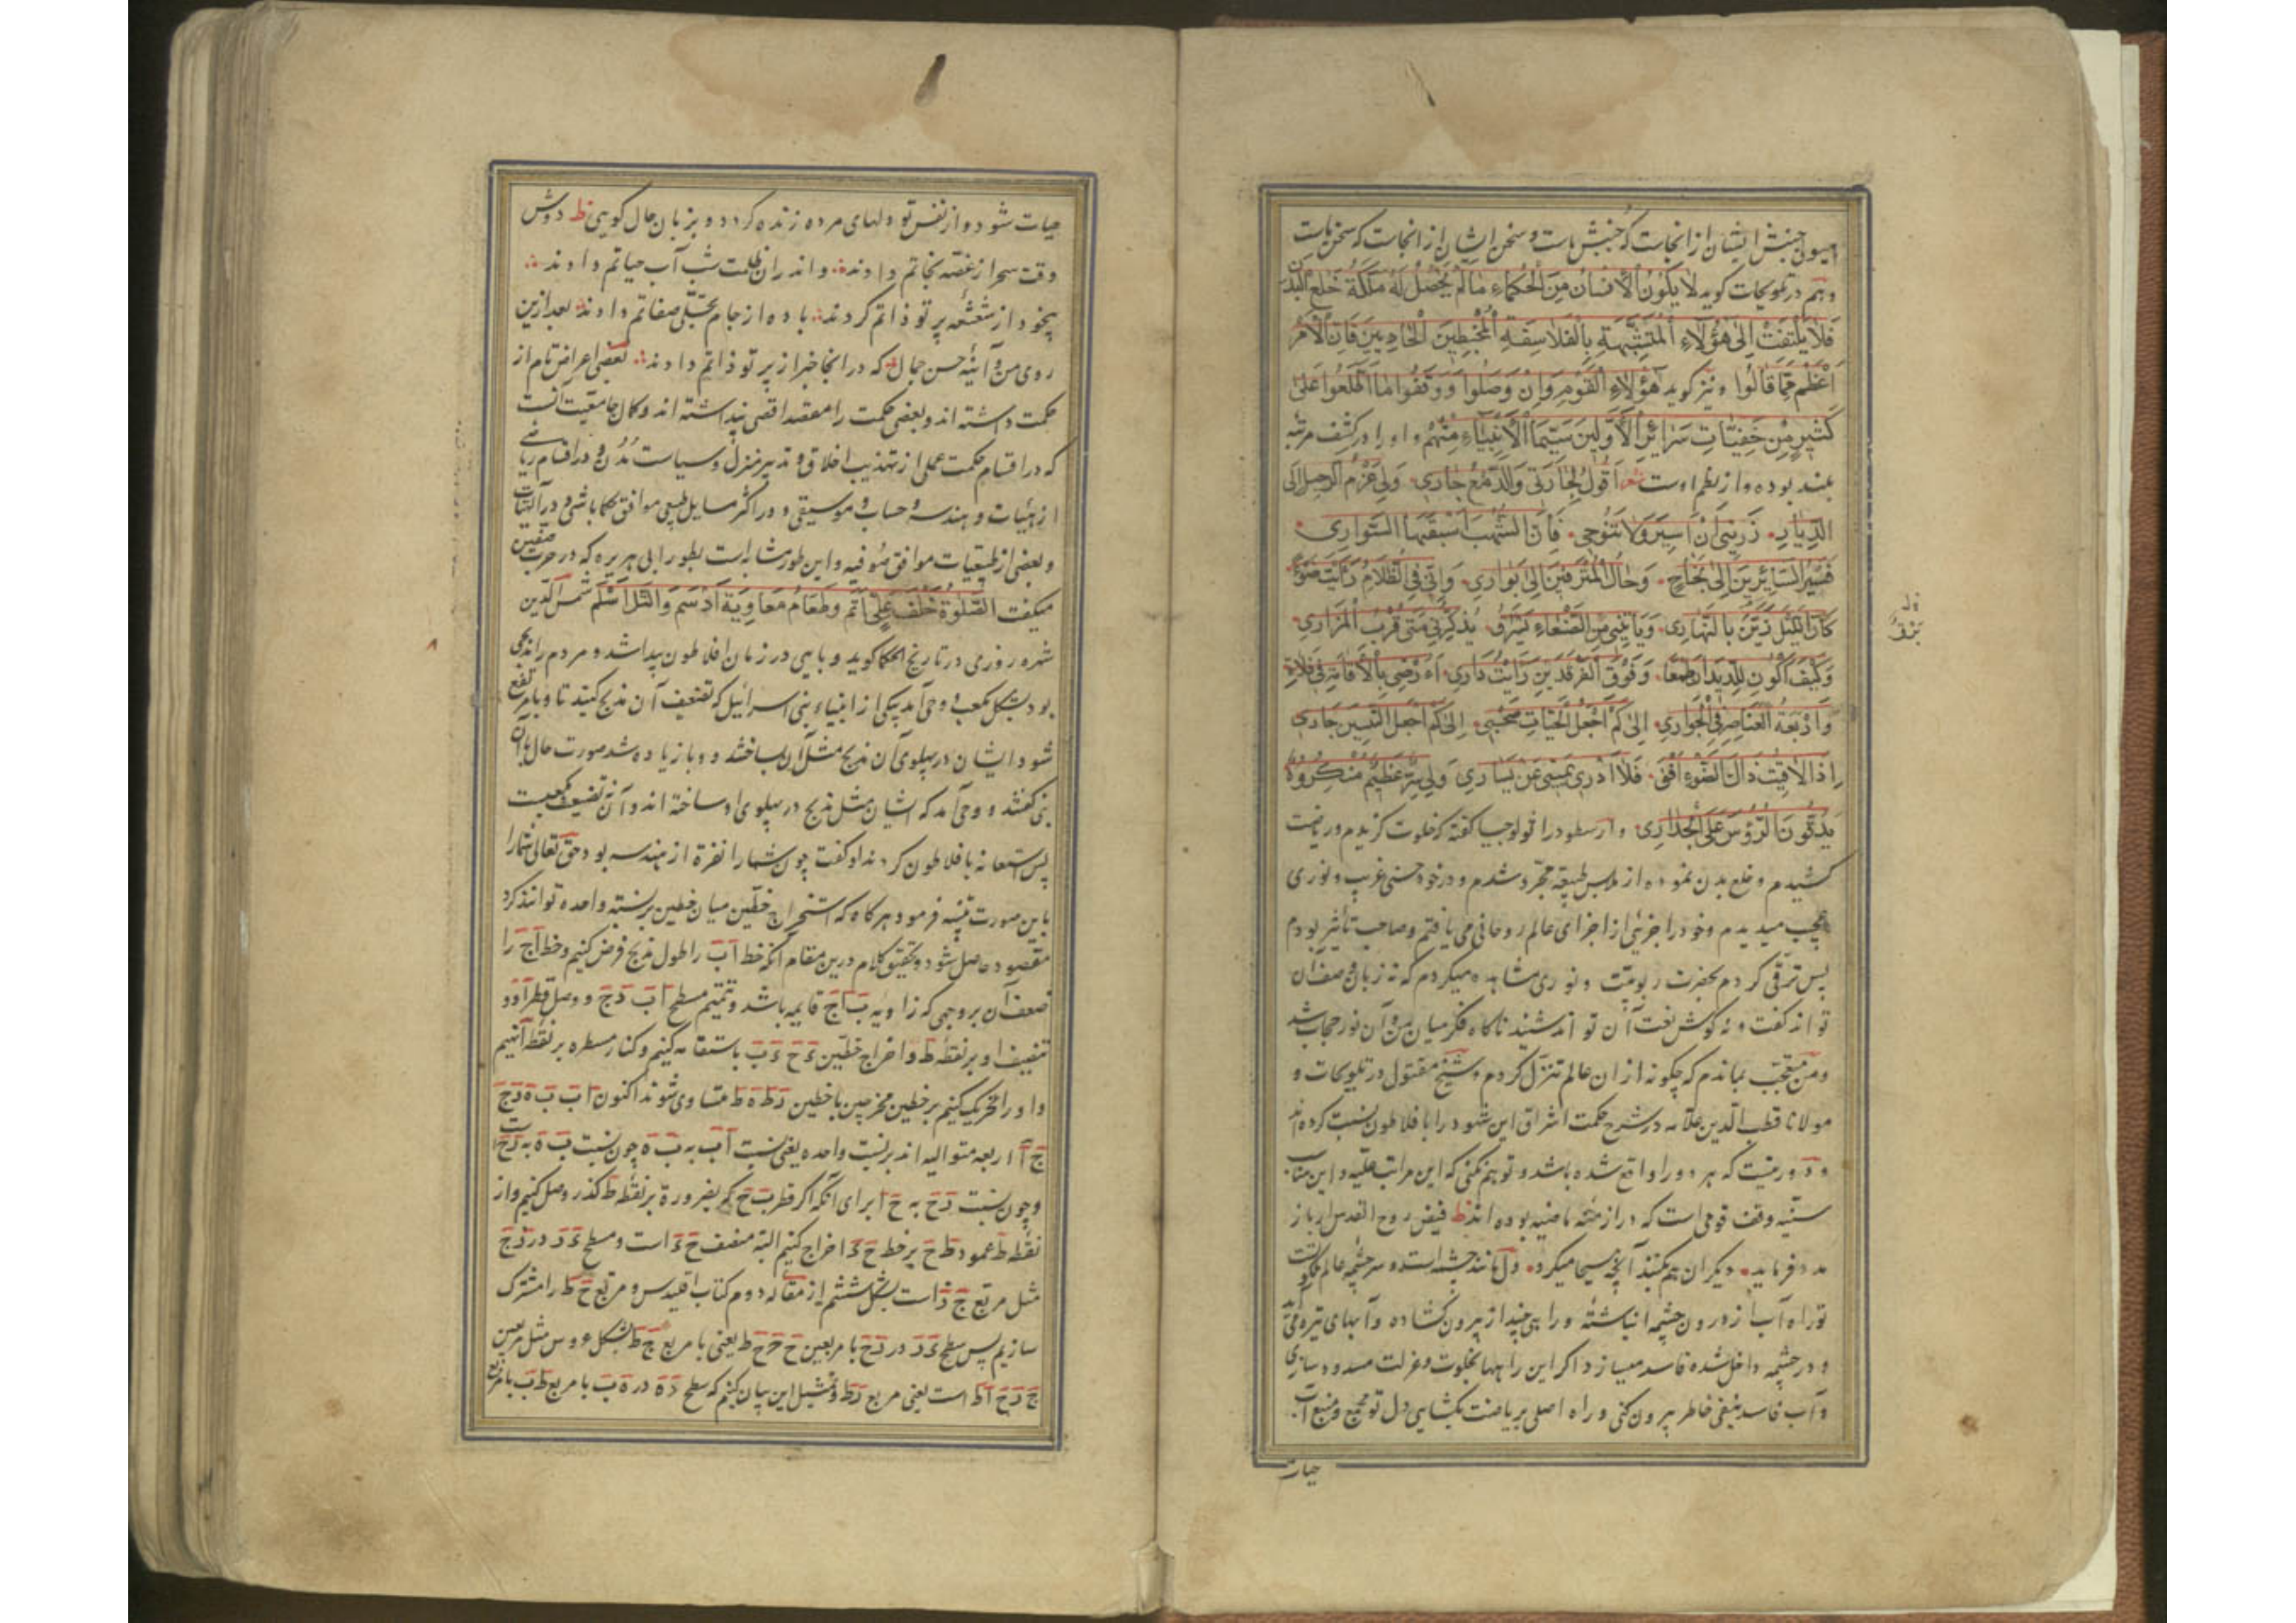 جنبش ایشان از انجاست که جنبش ماست و سخن ایشان از انجاست که سخن ماست
و هم در تلویحات کوید لَا یَکُونُ الْاِنْسَانُ مِنَ الْحُکَمَاءِ مَا لَمْ یَحْصُلْ لَهُ مَلَکَةُ خَلْعِ الْبَدَنِ
فَلَا یَلْتَفِتُ اِلٰی هٰؤُلَاءِ الْمُتَشَبِّهَةِ بِالْفَلَاسِفَةِ الْمُخْبِطِینَ الْمَادِیِینَ فَاِنَّ الْاَمْرَ
اَعْظَمُ مِمَّا قَالُوا و نیز کوید هٰؤُلَاءِ الْقَوْمِ وَاِنْ وَصَلُوا وَوَقَفُوا مَا اطَّلَعُوا عَلٰی
کَثِیرٍ مِنْ خَفِیَّاتِ سَرَائِرِ الْاَوَّلِینَ سِیَّمَا الْاَنْبِیَاءِ مِنْهُمْ و او را در کشف مرتبه
بلند بوده و از نظم اوست شعر اَقُولُ لِجَارَتِی وَالدَّمْعُ جَارِی وَلِی عَزْمُ الرَّحِیلِ اِلَی
الدِّیَارِ ذَرِینِی اَنْ اَسِیرَ وَلَا تَنُوحِی فَاِنَّ الشُّهْبَ اَسْبَقُهَا السَّوَارِی
فَسَیْرُ السَّائِرِینَ اِلٰی نَجَاحٍ وَحَالُ الْمُتْرَفِینَ اِلٰی بَوَارِی وَاِنِّی فِی الظَّلَامِ رَاَیْتُ ضَوْءً
کَاَنَّ اللَّیْلَ زُیِّنَ بِالنَّهَارِی وَیَاْتِینِی مِنَ الصَّنْعَاءِ بَرْقٌ یُذَکِّرُنِی مَتٰی قُرْبُ الْمَزَارِی
وَکَیْفَ اَکُونُ لِلدِّیدَانِ طُعْمًا وَفَوْقَ الْفَرْقَدَیْنِ رَاَیْتُ دَارِی اَءَرْضٰی بِالْاِقَامَةِ فِی فَلَاةٍ
وَاَرْبَعَةُ الْعَنَاصِرِ فِی الْجَوَارِی اِلٰی کَمْ اَجْعَلُ الْحَیَّاتِ صَحْبِی اِلٰی کَمْ اَجْعَلُ التِّنِّینَ جَارِی
اِذَا لَاقَیْتُ ذَاکَ الضَّوْءَ اَفْنٰی فَلَا اَدْرِی یَمِینِی عَنْ یَسَارِی وَلِی سِرٌّ عَظِیمٌ مُنْکِرُوهُ
یَدُقُّونَ الرُّؤُسَ عَلَی الْجِدَارِی و ارسطو در اثولوجیا کفته که خلوت کزیدم و ریاضت
کشیدم و خلع بدن نموده از ملابس طبیعة مجرّد شدم و در خود حسنی غریب و نوری
عجیب میدیدم و خود را جزئی از اجزای عالم روحانی می یافتم و صاحب تاثیر بودم
پس ترقّی کردم بحضرت ربوبیّت و نوری مشاهده میکردم که نه زبان وصف آن
تواند کفت و نه کوش نعت آن تواند شنید ناکاه فکر میان من و آن نور حجاب شد
و من متعجّب بماندم که چکونه از ان عالم تنزّل کردم و شیخ مقتول در تلویحات و
مولانا قطب الدّین علّامه در شرح حکمت اشراق این شهود را بافلاطون نسبت کرده اند
و دور نیست که هر دو را واقع شده باشد و توهّم نکنی که این مراتب علیّه و این مناقب
سنیّه وقف قومی است که در ازمنه ماضیه بوده اند ط فیض روح القدس ار باز
مدد فرماید دیکران هم بکنند آنچه مسیحا میکرد دل مانند چشمه است و سرچشمه عالم ملکوت
تو راه آب از درون چشمه انباشته و راهی چند از بیرون کشاده و آبهای تیره می آید
و در چشمه داخل شده فاسد میسازد اکر این راهها بخلوت و عزلت مسدود سازی
و آب فاسد بنفی خاطر بیرون کنی و راه اصلی بریاضت بکشایی دل تو مجمع و منبع آب
حیات
حیات شود و از نفس تو دلهای مرده زنده کردد و بزبان حال کویی ط دوش
وقت سحر از غصّه نجاتم دادند و اندر ان ظلمت شب آب حیاتم دادند
بیخود از شعشعه پرتو ذاتم کردند باده از جام تجلّی صفاتم دادند بعد ازین
روی من و آئینه حسن جمال که در انجا خبر از پرتو ذاتم دادند بعضی اعراض تام از
حکمت داشته اند و بعضی حکمت را مقصد اقصی پنداشته اند و کمال جامعیّت آنست
که در اقسام حکمت عملی از تهذیب اخلاق و تدبیر منزل و سیاست مُدُن و در اقسام ریاضی
از هیئات و هندسه و حساب و موسیقی و در اکثر مسایل طبیعی موافق حکما باشد و در الهیّات
و بعضی از طبیعیات موافق صُوفیه و این طور مشابه است بطور ابی هریره که در حرب صفین
میکفت الصَّلٰوةُ خَلْفَ عَلِیٍّ اَتَمُّ وَطَعَامُ مُعَاوِیَةَ اَدْسَمُ وَالتَّلُّ اَسْلَمُ شمس الدّین
شهره زوری در تاریخ الحکما کوید وبایی در زمان افلاطون پیدا شد و مردم را مذبحی
بود بشکل مکعب وحی آمد بیکی از انبیاء بنی اسرائیل که تضعیف آن مذبح کنید تا وبا مرتفع
شود ایشان در پهلوی آن مذبح مثل آن بساختند و وبا زیاده شد صورت حال با آن
نبی کفتند وحی آمد که ایشان مثل مذبح در پهلوی او ساخته اند و آن نه تضعیف مکعبست
پس استعانه بافلاطون کردند او کفت چون شما را نفرة از هندسه بود حق تعالی شما را
باین صورت تنبیه فرمود هرکاه که استخراج خطّین میان خطین بر نسبته واحده توانند کرد
مقصود حاصل شود و تحقیق کلام درین مقام آنکه خط اَب را طول مذبح فرض کنیم و خط اَج را
ضعف آن بر وجهی که زاویه ب اج قایمه باشد و تتمیم مسطح اب دج و وصل قطر اد و
تنصیف او بر نقطه ط و اخراج خطّین دح دب باستقامه کنیم و کنار مسطره بر نقطه ا نهیم
و او را تحریک کنیم بر خطین مخرجین تا خطین طح طه متساوی شوند اکنون اب ب ه دج
ج ا اربعه متوالیه اند بر نسبت واحده یعنی نسبت اب به ب ه چون نسبت ب ه به دح است
و چون نسبت دح به ح ا برای آنکه اکر قطر ب ج که بضرورة بر نقطه ط کذرد وصل کنیم و از
نقطه ط عمود ط ح بر خط ح د اخراج کنیم البته منصف ح د است و مسطح ء د در د ج
مثل مربع ج ذ است بشکل ششم از مقاله دوم کتاب اقلیدس و مربع ح ط را مشترک
سازیم پس سطح ء د در د ح با مربعین ح ح ح ط یعنی با مربع ج ط بشکل عروس مثل مربعین
است یعنی مربع د ط و بمثل این بیان کنیم که سطح د ه در ه ب با مربع ط ب با مربع